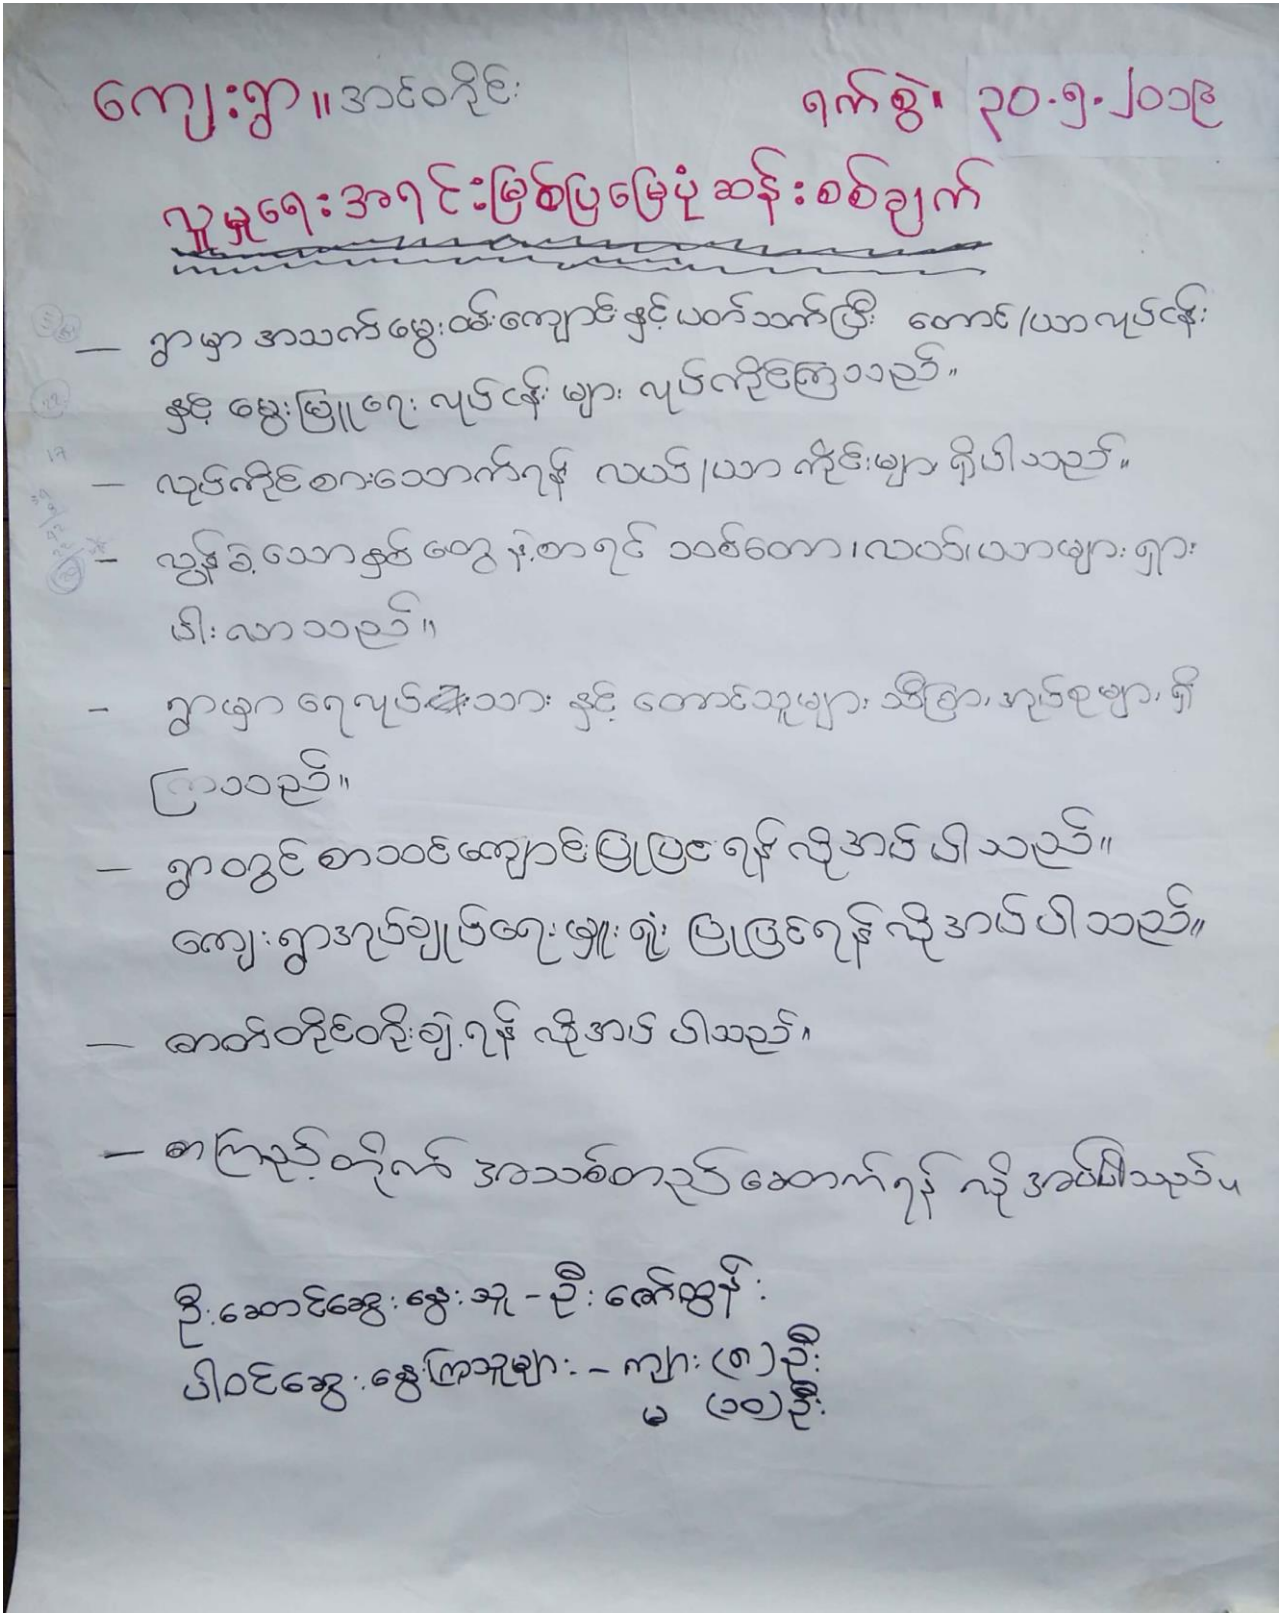 ကျေးရွာ။ အင်တိုင်း ရက်စွဲ။ ၃၀.၅.၂၀၁၉
လူမှုရေးအရင်းမြစ်ပြမြေပုံဆန်းစစ်ချက်
– ရွာမှာ အသက်မွေးဝမ်းကျောင်းနှင့်ပတ်သက်ပြီး တောင်/ယာလုပ်ငန်း
နှင့် မွေးမြူရေး လုပ်ငန်းများ လုပ်ကိုင်ကြသည်။
– လုပ်ကိုင်စားသောက်ရန် လယ်/ယာ ကိုင်းများ ရှိပါသည်။
– လွန်ခဲ့သောနှစ်တွေနဲ့စာရင် သစ်တော၊လယ်၊ယာများ ရှား
ပါးလာသည်။
– ရွာမှာ ရေလုပ်သား နှင့် တောင်သူများ သီးခြားအုပ်စုများ ရှိ
ကြသည်။
– ရွာတွင် စာသင်ကျောင်းပြုပြင်ရန် လိုအပ်ပါသည်။
ကျေးရွာအုပ်ချုပ်ရေးမှူးရုံး ပြုပြင်ရန် လိုအပ်ပါသည်။
– ဓာတ်တိုင်တိုးချဲ့ရန် လိုအပ်ပါသည်။
– စာကြည့်တိုက် အသစ်တည်ဆောက်ရန် လိုအပ်ပါသည်။
ဦးဆောင်ဆွေးနွေးသူ – ဦးဇော်ထွန်း
ပါဝင်ဆွေးနွေးကြသူများ – ကျား (၈)ဦး
မ (၁၀)ဦး